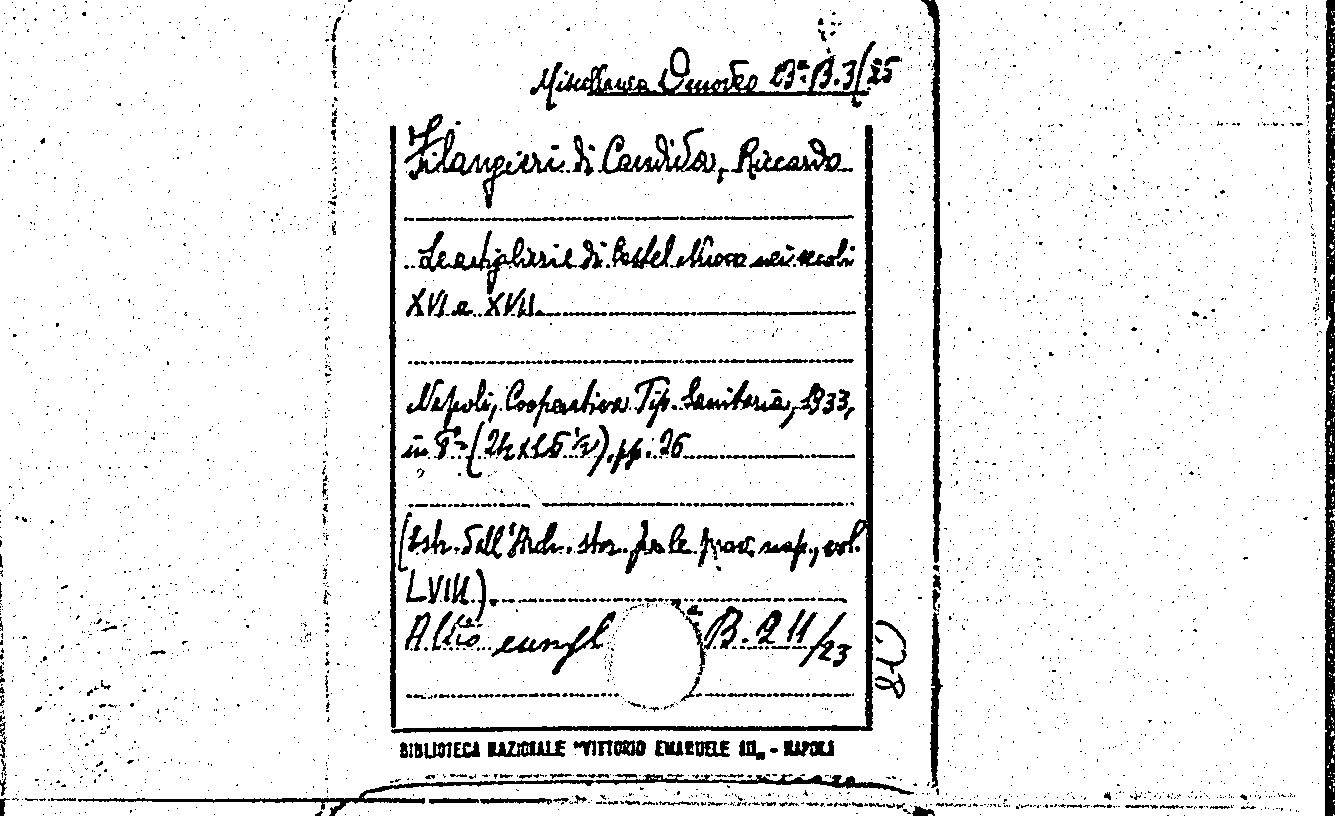 Miscellanea Omodeo Bª B.3/25
Filangieri di Candida, Riccardo
Le artiglierie di Castel Nuovo nei secoli
XVI e XVII.
Napoli, Cooperativa Tip. Sanitaria, 1933,
in 8° (24 x 15 ½), pp. 26
(Estr. dall'Arch. stor. per le prov. nap., vol.
LVIII).
Altro B. 211/23
BIBLIOTECA NAZIONALE "VITTORIO EMANUELE III" - NAPOLI